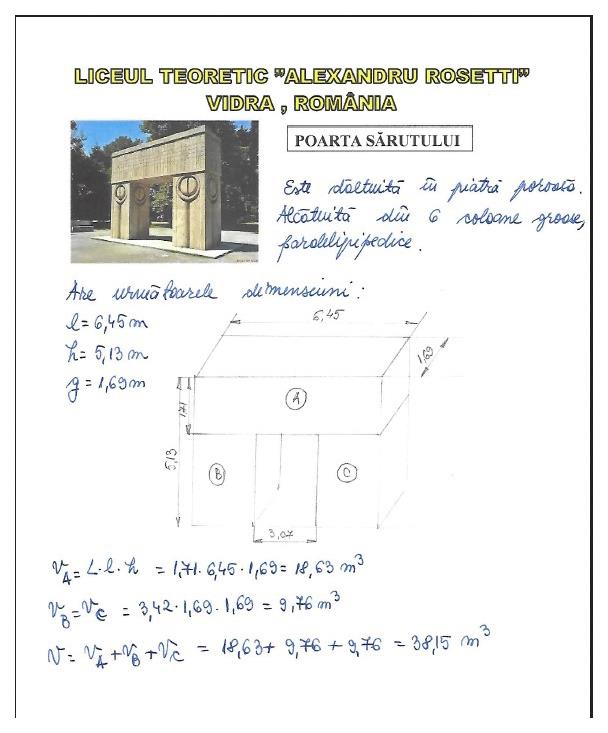 LICEUL TEORETIC "ALEXANDRU ROSETTI"
VIDRA , ROMÂNIA
POARTA SĂRUTULUI
Este dăltuită în piatră poroasă.
Alcătuită din 6 coloane groase,
paralelipipedice.
Are următoarele dimensiuni:
l = 6,45 m
h = 5,13 m
g = 1,69 m
6,45
1,69
1,71
A
5,13
B
C
3,07
V_A = L·l·h = 1,71·6,45·1,69 = 18,63 m³
V_B = V_C = 3,42·1,69·1,69 = 9,76 m³
V = V_A + V_B + V_C = 18,63 + 9,76 + 9,76 = 38,15 m³